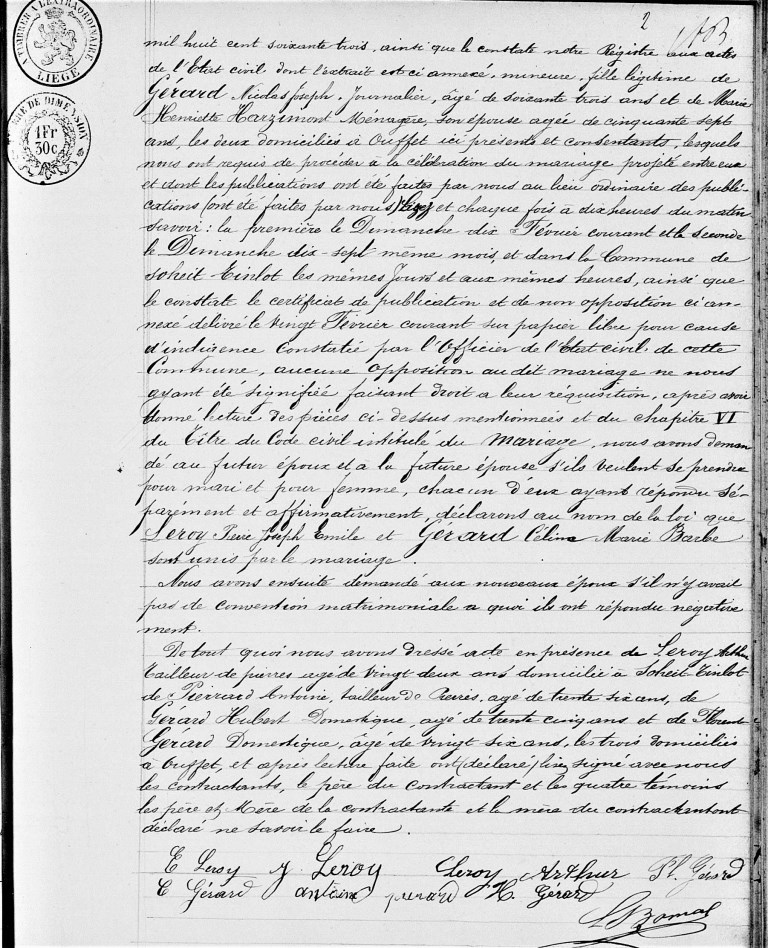 2
103
TIMBRER A L'EXTRAORDINAIRE
LIEGE
DE DIMENSION
1Fr
30c
mil huit cent soixante trois, ainsi que le constate notre Registre aux actes
de l'Etat civil dont l'extrait est ci annexé, mineure, fille légitime de
Gérard Nicolas Joseph, Journalier, âgé de soixante trois ans et de Marie
Henriette Harzimont Ménagère, son épouse agée de cinquante sept
ans, les deux domiciliés à Ouffet ici présents et consentants, lesquels
nous ont requis de procéder à la célébration du mariage projeté entre eux
et dont les publications ont été faites par nous au lieu ordinaire des publi-
cations (ont été faites par nous) lizez et chaque fois à dix heures du matin
savoir: la première le Dimanche dix Février courant et la seconde
le Dimanche dix-sept même mois, et dans la Commune de
Soheit Tinlot les mêmes Jours et aux mêmes heures, ainsi que
le constat le certificat de publication et de non opposition ci an-
nexé delivré le vingt Février courant sur papier libre pour cause
d'indigence constatée par l'Officier de l'Etat civil de cette
Commune, aucune opposition au dit mariage ne nous
ayant été signifiée faisant droit a leur réquisition, après avoir
donné lecture des pièces ci-dessus mentionnées et du chapitre VI
du Titre du Code civil intitulé du Mariage, nous avons deman
dé au futur époux et à la future épouse s'ils veulent se prendre
pour mari et pour femme, chacun d'eux ayant répondu sé-
parément et affirmativement, déclarons au nom de la loi que
Leroy Joseph Emile et Gérard Céline Marie Barbe
sont unis par le mariage.
Nous avons ensuite demandé aux nouveaux époux s'il n'y avait
pas de convention matrimoniale a quoi ils ont répondu negative
ment.
De tout quoi nous avons dressé acte en présence de Leroy Arthur
Tailleur de pierres agé de vingt deux ans domicilié à Soheit Tinlot
de Pierrard Antoine, tailleur de Pierres, agé de trente six ans, de
Gérard Hubert Domestique, agé de trente cinq ans et de Florent
Gérard Domestique, âgé de vingt six ans, les trois domiciliés
à Ouffet, et après lecture faite ont (déclaré) liez signé avec nous
les contractants, le père du contractant et les quatre témoins
les père et Mère de la contractante et la mère du contractant ont
déclaré ne savoir le faire.
E Leroy J Leroy Leroy Arthur Fl. Gérard
C Gérard antoine H. Gérard